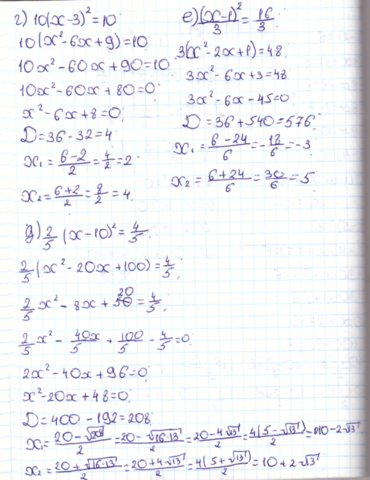 г) 10(x-3)²=10
10(x²-6x+9)=10
10x²-60x+90=10
10x²-60x+80=0
x²-6x+8=0
D=36-32=4
x₁=(6-2)/2=4/2=2
x₂=(6+2)/2=8/2=4.
е) (x-1)²/3=16/3
3(x²-2x+1)=48
3x²-6x+3=48
3x²-6x-45=0
D=36+540=576
x₁=(6-24)/6=-18/6=-3
x₂=(6+24)/6=30/6=5
д) 2/5 (x-10)²=4/5
2/5 (x²-20x+100)=4/5
2/5 x²-8x+20=4/5
2/5 x²-40x/5+100/5-4/5=0
2x²-40x+96=0
x²-20x+48=0
D=400-192=208
x₁=(20-√208)/2=(20-√16·13)/2=(20-4√13)/2=4(5-√13)/2=10-2√13
x₂=(20+√16·13)/2=(20+4√13)/2=4(5+√13)/2=10+2√13